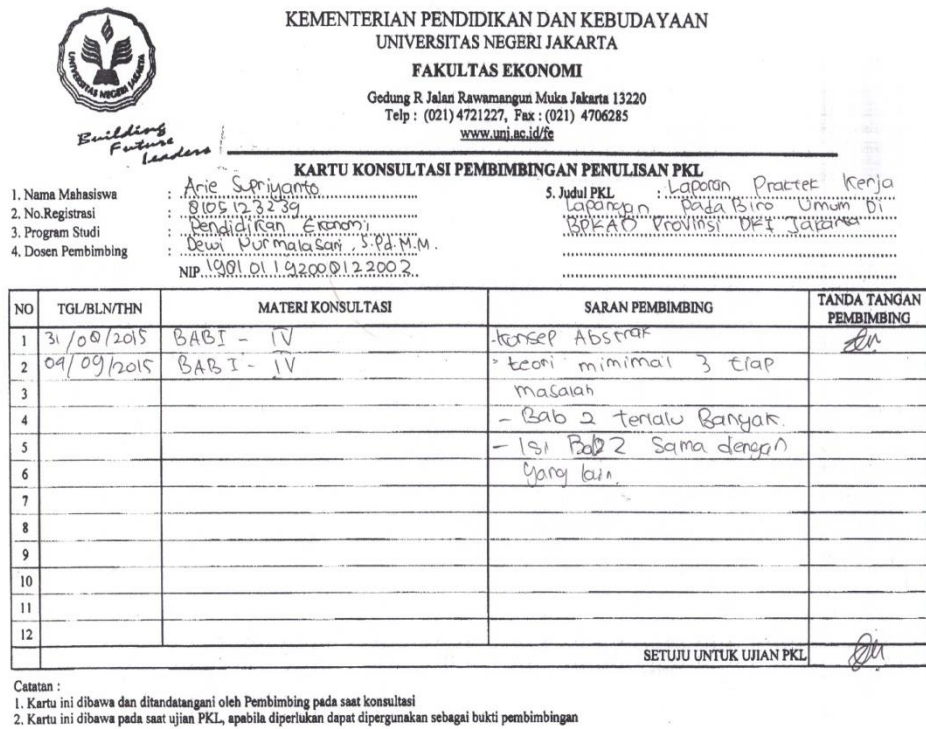 KEMENTERIAN PENDIDIKAN DAN KEBUDAYAAN
UNIVERSITAS NEGERI JAKARTA
FAKULTAS EKONOMI
Gedung R Jalan Rawamangun Muka Jakarta 13220
Telp : (021) 4721227, Fax : (021) 4706285
www.unj.ac.id/fe
UNIVERSITAS NEGERI JAKARTA
Building
Future
Leaders
KARTU KONSULTASI PEMBIMBINGAN PENULISAN PKL
1. Nama Mahasiswa : Arie Supriyanto
2. No.Registrasi : 8105123239
3. Program Studi : Pendidikan Ekonomi
4. Dosen Pembimbing : Dewi Nurmalasari, S.Pd.M.M.
NIP.
5. Judul PKL : Laporan Praktek Kerja
Lapangan Pada Biro Umum Di
BPKAD Provinsi DKI Jakarta
NO TGL/BLN/THN MATERI KONSULTASI SARAN PEMBIMBING TANDA TANGAN PEMBIMBING
1 31/08/2015 BAB I - IV -konsep Abstrak
2 09/2015 BAB I - IV - teori minimal 3 tiap
3 masalah
4 - Bab 2 terlalu Banyak.
5 - Isi Bab 2 Sama dengan
6 yang lain.
7
8
9
10
11
12
SETUJU UNTUK UJIAN PKL
Catatan :
1. Kartu ini dibawa dan ditandatangani oleh Pembimbing pada saat konsultasi
2. Kartu ini dibawa pada saat ujian PKL, apabila diperlukan dapat dipergunakan sebagai bukti pembimbingan